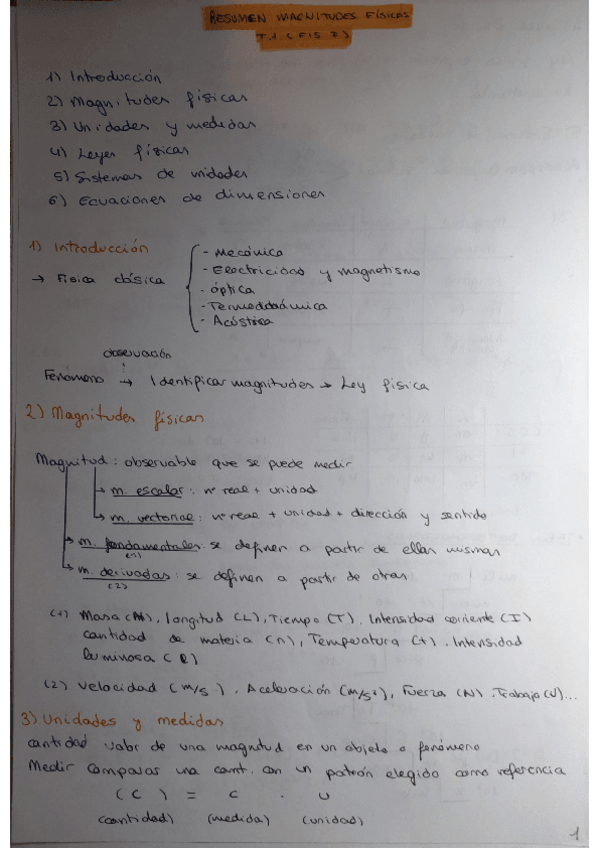 RESUMEN MAGNITUDES FÍSICAS
T.1 (FIS I)
1) Introducción
2) Magnitudes físicas
3) Unidades y medidas
4) Leyes físicas
5) Sistemas de unidades
6) Ecuaciones de dimensiones
1) Introducción
→ Física clásica
- Mecánica
- Electricidad y magnetismo
- óptica
- Termodinámica
- Acústica
observación
Fenómeno → Identificar magnitudes → Ley física
2) Magnitudes físicas
Magnitud: observable que se puede medir
→ m. escalar: nº real + unidad
→ m. vectorial: nº real + unidad + dirección y sentido
→ m. fundamentales: se definen a partir de ellas mismas
(1)
→ m. derivadas: se definen a partir de otras
(2)
(1) Masa (M), longitud (L), Tiempo (T), Intensidad corriente (I)
cantidad de materia (n), Temperatura (t), Intensidad
luminosa (
(2) Velocidad (m/s), Aceleración (m/s²), Fuerza (N), Trabajo (J)...
3) Unidades y medidas
cantidad valor de una magnitud en un objeto o fenómeno
Medir comparas una cant. con un patrón elegido como referencia
(C) = C · U
(cantidad) (medida) (unidad)
1